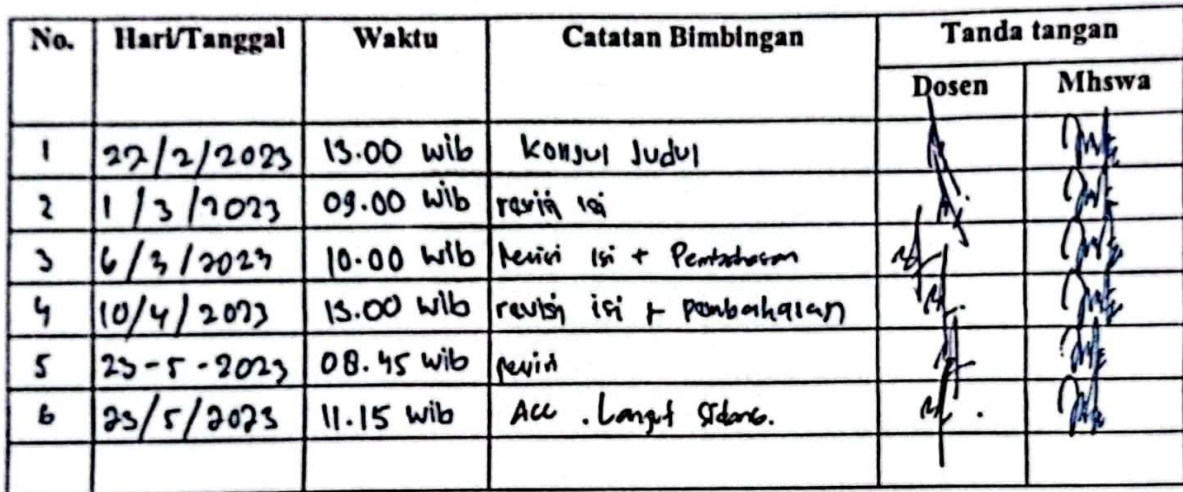 No. Hari/Tanggal Waktu Catatan Bimbingan Tanda tangan
Dosen Mhswa
1 22/2/2023 13.00 wib Konsul Judul
2 1/3/2023 09.00 wib revisi isi
3 6/3/2023 10.00 wib Revisi isi + Pembahasan
4 10/4/2023 13.00 wib revisi isi + pembahasan
5 23-5-2023 08.45 wib revisi
6 23/5/2023 11.15 wib Acc. Lanjut Sidang.